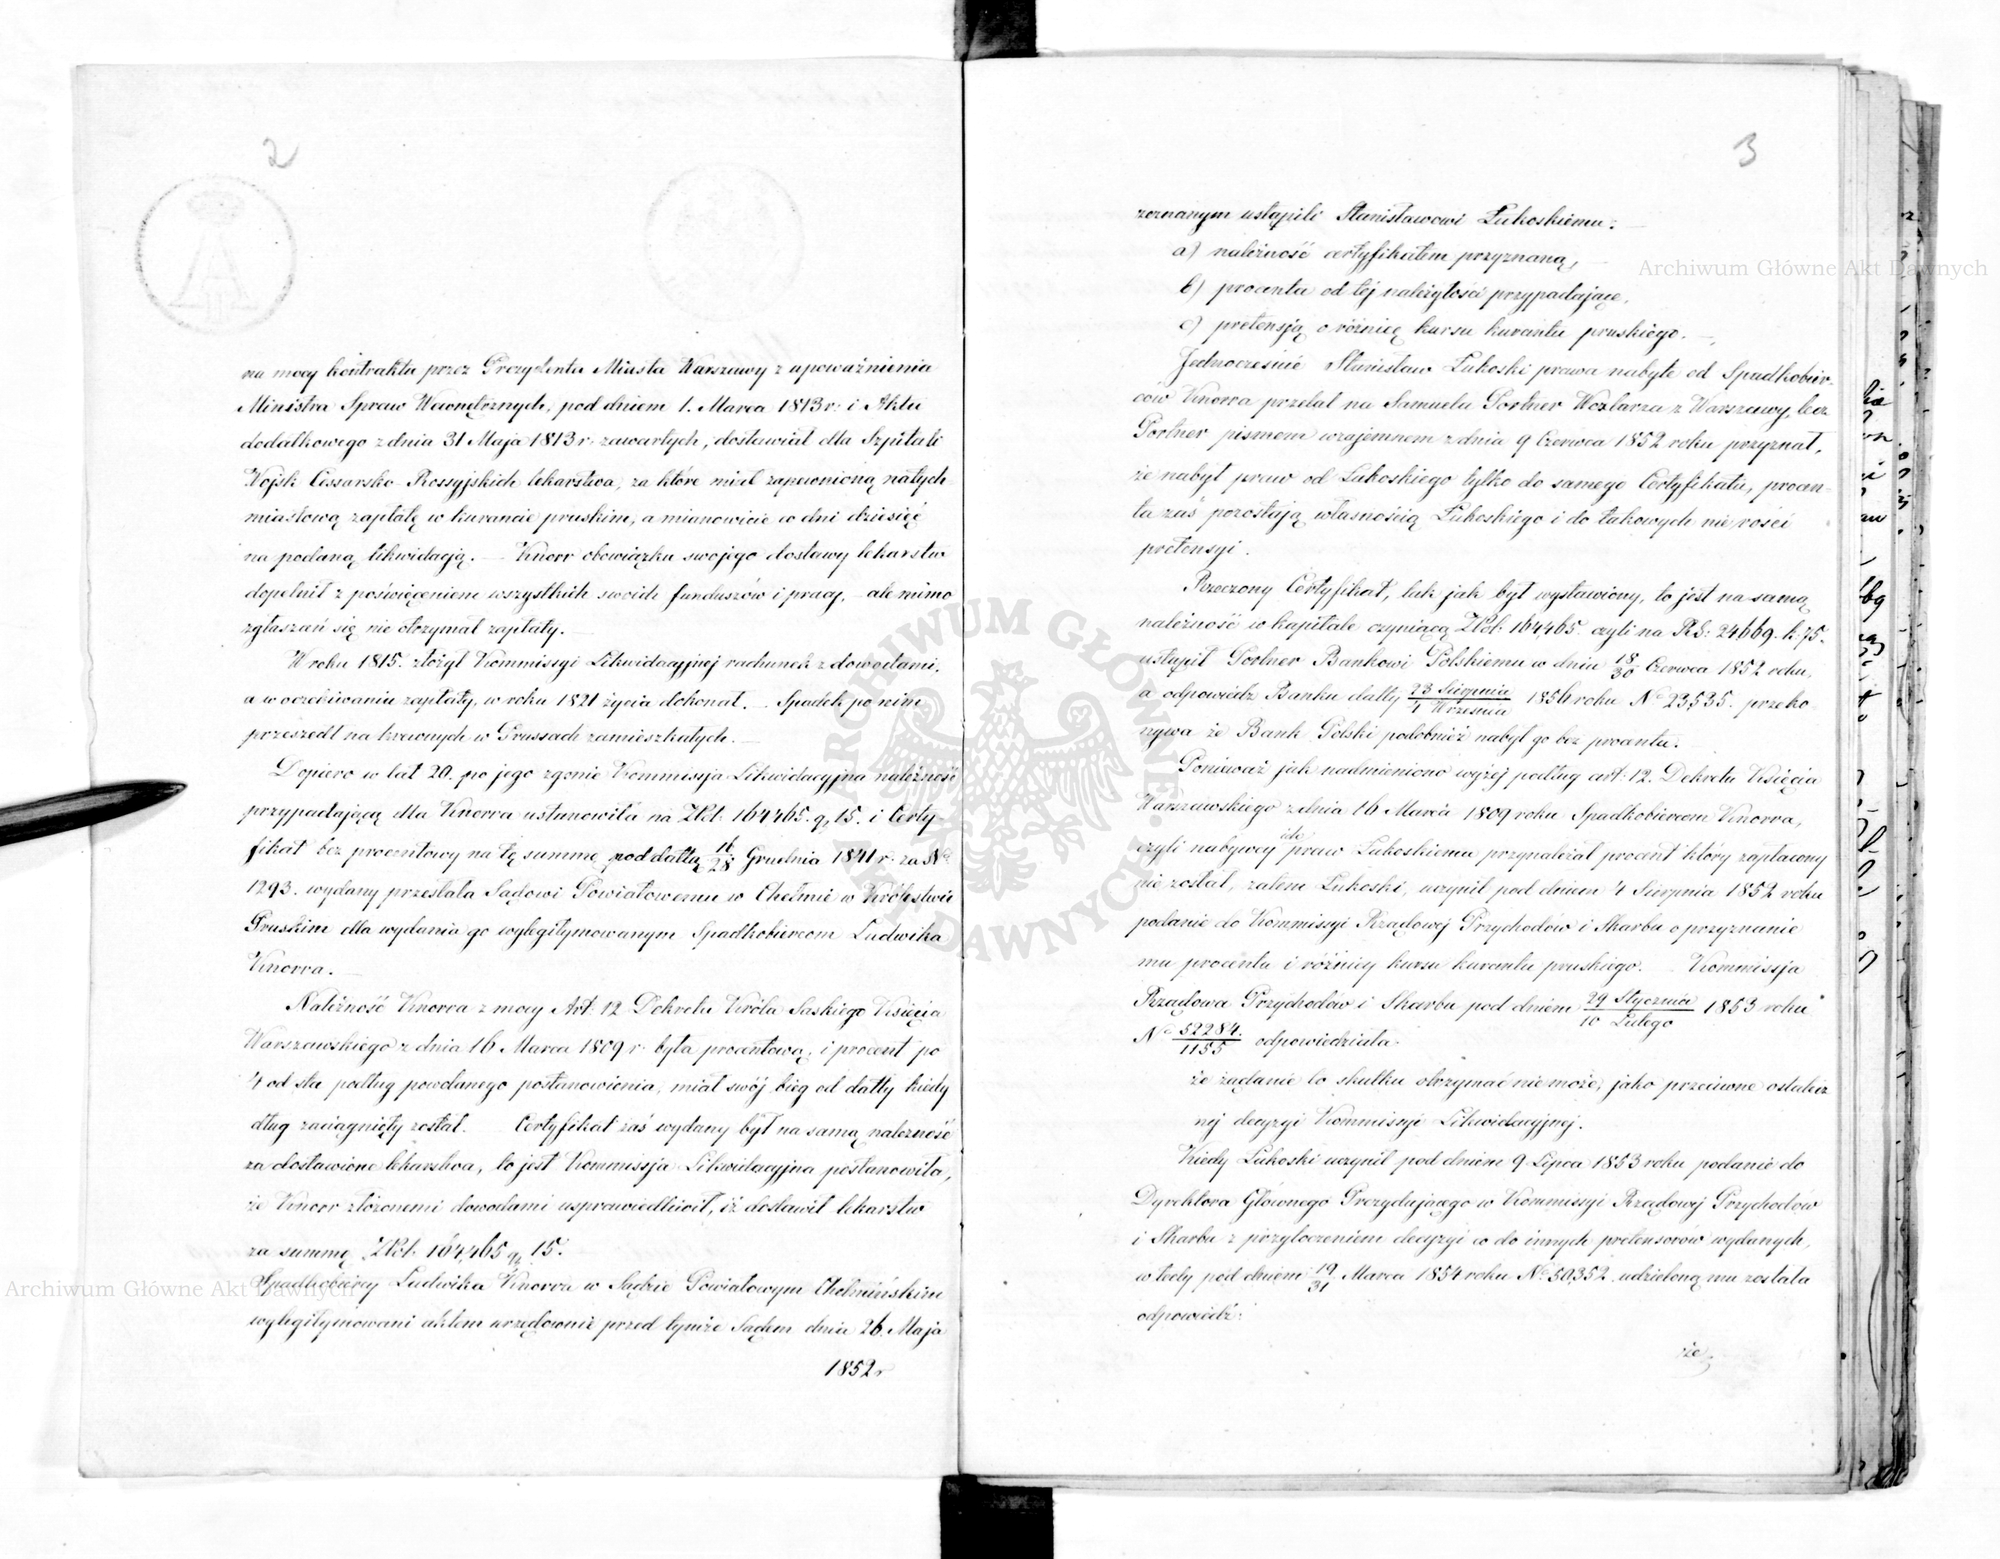 2
na mocy kontraktu przez Prezydenta Miasta Warszawy z upoważnienia
Ministra Spraw Wewnętrznych, pod dniem 1. Marca 1813 r: i Aktu
dodatkowego z dnia 31 Maja 1813 r. zawartych, dostawiał dla Szpitali
Wojsk Cessarsko-Rossyjskich lekarstwa, za które miał zapewnioną natych-
miastową zapłatę w kurancie pruskim, a mianowicie w dni dziesięć
na podaną likwidacją. — Knorr obowiązku swojego dostawy lekarstw
dopełnił z poświęceniem wszystkich swoich funduszów i pracy, – ale mimo
zgłaszań się nie otrzymał zapłaty. —
W roku 1815. złożył Kommissyi Likwidacyjnej rachunek z dowodami,
a w oczekiwaniu zapłaty, w roku 1821 życia dokonał. — Spadek po nim
przeszedł na krewnych w Prussach zamieszkałych. —
Dopiero w lat 20. po jego zgonie Kommissja Likwidacyjna należność
przypadającą dla Knorra ustanowiła na ZŁPol: 164465. g. 15. i Certy-
fikat bez procentowy na tę summę pod datą 16/28 Grudnia 1841 r. za No
1293. wydany przesłała Sądowi Powiatowemu w Chełmie w Królestwie
Pruskim dla wydania go wylegitymowanym Spadkobiercom Ludwika
Knorra. —
Należność Knorra z mocy Art: 12 Dekretu Króla Saskiego Księcia
Warszawskiego z dnia 16 Marca 1809 r. była procentową, i procent po
4 od sta podług powołanego postanowienia, miał swój bieg od datty kiedy
dług zaciągnięty został. Certyfikat zaś wydany był na samą należność
za dostawione lekarstwa, to jest Kommissja Likwidacyjna postanowiła,
że Knorr złożonemi dowodami usprawiedliwił, iż dostawił lekarstw
za summę ZŁPol: 164,465 g. 15.
Spadkobiercy Ludwika Knorra w Sądzie Powiatowym Chełmińskim
wylegitymowani aktem urzędownie przed tymże Sądem dnia 26. Maja
1852 r
3
zeznanym ustąpili Stanisławowi Łukoskiemu:
a) należność certyfikatem przyznaną,
b) procenta od tej należytości przypadające,
c) pretensją o różnicę kursu kurantu pruskiego. —
Jednocześnie Stanisław Łukoski prawa nabyte od Spadkobier-
ców Knorra przelał na Samuela Portner Wexlarza z Warszawy, lecz
Portner pismem wzajemnem z dnia 9 Czerwca 1852 roku przyznał,
że nabył praw od Łukoskiego tylko do samego Certyfikatu, procen-
ta zaś pozostają własnością Łukoskiego i do takowych nie rości
pretensyi.
Rzeczony Certyfikat, tak jak był wystawiony, to jest na samą
należność w kapitale czyniącą ZŁPol: 164465. czyli na RS: 24669. k. 75.
ustąpił Portner Bankowi Polskiemu w dniu 18/30 Czerwca 1852 roku,
a odpowiedź Banku datty 23 Sierpnia/4 Września 1856 roku No 23,535. przeko-
nywa że Bank Polski podobnież nabył go bez procentu.
Ponieważ jak nadmieniono wyżej podług art: 12. Dekretu Księcia
Warszawskiego z dnia 16 Marca 1809 roku Spadkobiercom Knorra,
czyli nabywcy ich praw Łukoskiemu przynależał procent który zapłacony
nie został, zatem Łukoski, uczynił pod dniem 4 Sierpnia 1852 roku
podanie do Kommissyi Rządowej Przychodów i Skarbu o przyznanie
mu procentu i różnicy kursu kurantu pruskiego. Kommissja
Rządowa Przychodów i Skarbu pod dniem 29 Stycznia/10 Lutego 1853 roku
No 52284./1155 odpowiedziała
że żądanie to skutku otrzymać nie może, jako przeciwne ostatecz
nej decyzyi Kommissyi Likwidacyjnej.
Kiedy Łukoski uczynił pod dniem 9 Lipca 1853 roku podanie do
Dyrektora Głównego Prezydującego w Kommissyi Rządowej Przychodów
i Skarbu z przytoczeniem decyzyi co do innych pretensorów wydanych,
wtedy pod dniem 19/31 Marca 1854 roku No 50,352. udzieloną mu została
odpowiedź:
że
Archiwum Główne Akt Dawnych
Archiwum Główne Akt Dawnych
ARCHIWUM GŁÓWNE AKT DAWNYCH